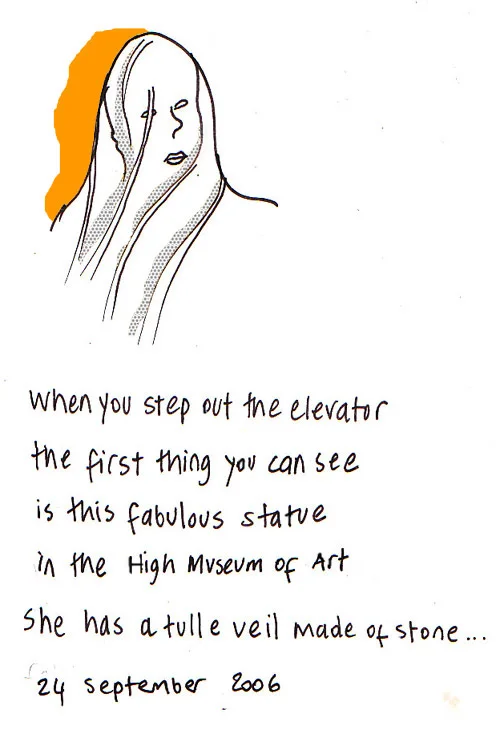 When you step out the elevator
the first thing you can see
is this fabulous statue
in the High Museum of Art
She has a tulle veil made of stone...
24 september 2006